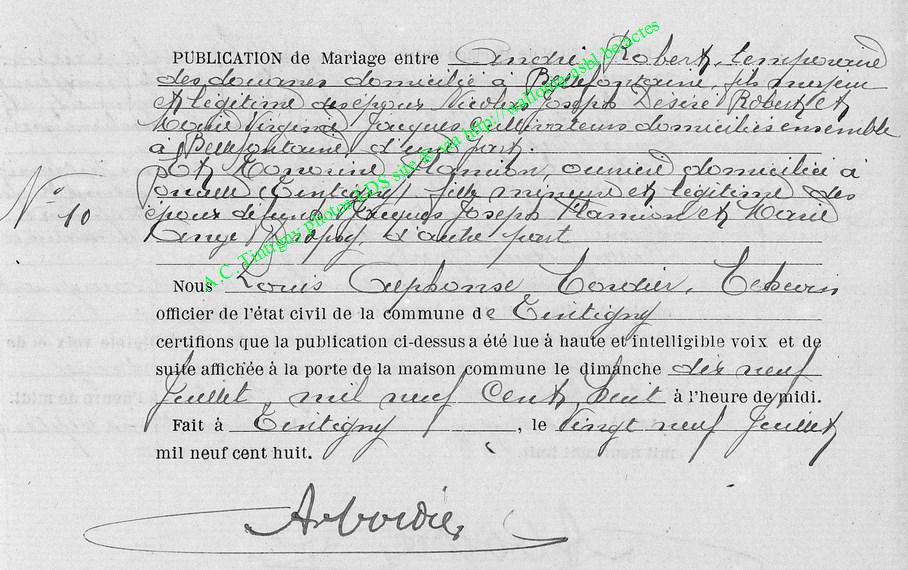 PUBLICATION de Mariage entre André Robert, temporaire
des douanes domicilié à Bellefontaine, fils majeur
et légitime des époux Nicolas Joseph Désiré Robert et
Marie Virginie Jacques cultivateurs domiciliés ensemble
à Bellefontaine, d'une part.
Et Honorine Hamion, ouvrière domiciliée à
(Tintigny) fille mineure et légitime des
époux défunts Jacques Joseph Hamion et Marie
d'autre part
N° 10
Nous Louis Alphonse Cordier, Echevin
officier de l'état civil de la commune de Tintigny
certifions que la publication ci-dessus a été lue à haute et intelligible voix et de
suite affichée à la porte de la maison commune le dimanche dix neuf
Juillet mil neuf cent huit à l'heure de midi.
Fait à Tintigny, le vingt neuf Juillet
mil neuf cent huit.
A.C. Tintigny photos LDS site &